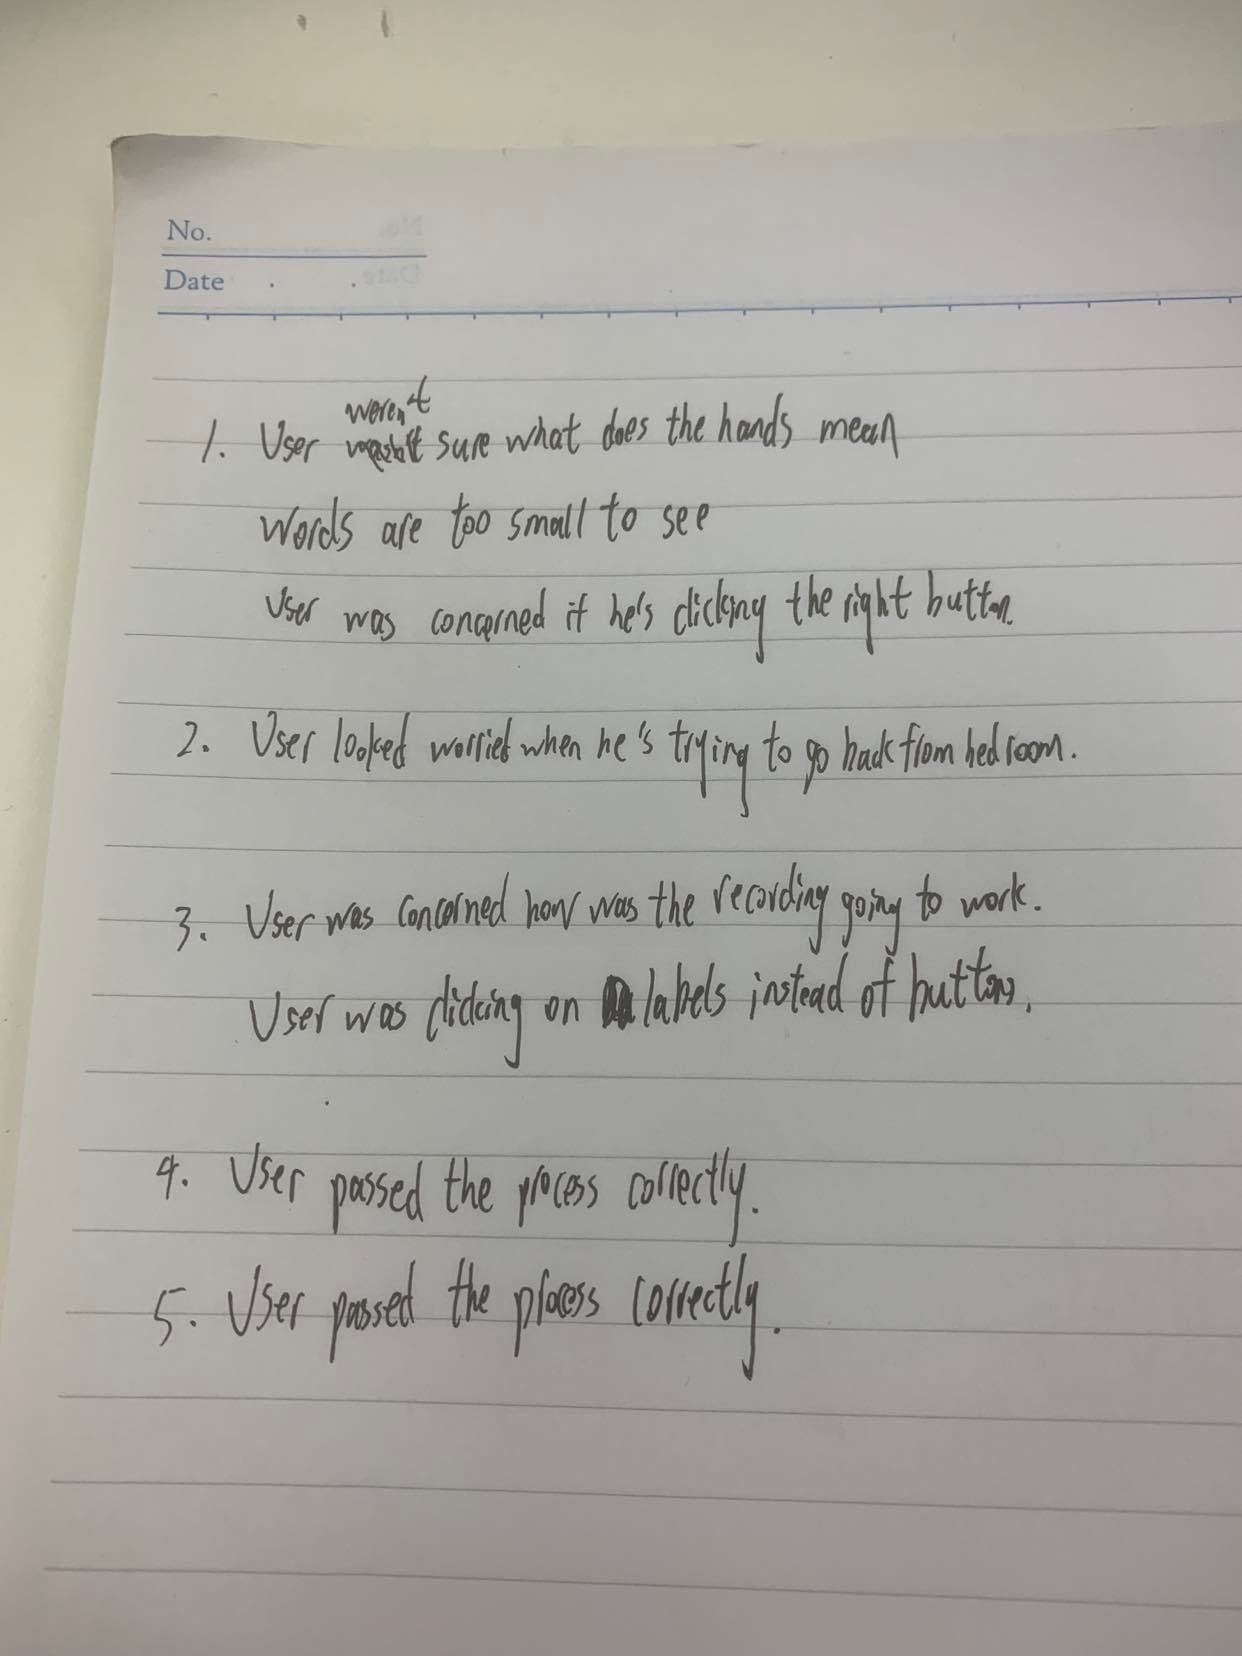 No.
Date . .
weren't
1. User sure what does the hands mean
Words are too small to see
User was concerned if he's clicking the right button.
2. User looked worried when he's trying to go back from bedroom.
3. User was concerned how was the recording going to work.
User was clicking on labels instead of buttons.
4. User passed the process correctly.
5. User passed the process correctly.